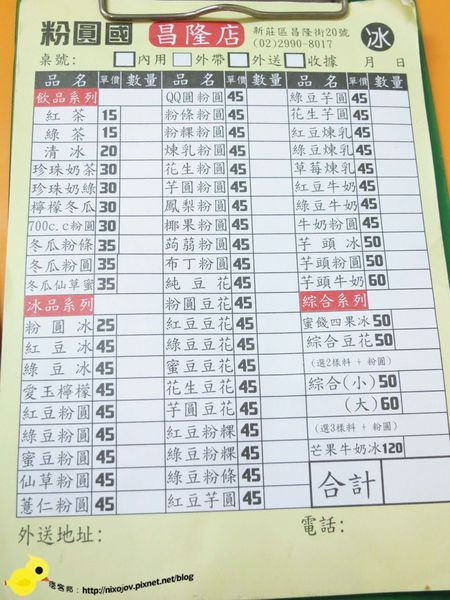 粉圓國 昌隆店 新莊區昌隆街20號
(02)2990-8017
冰
桌號: 內用 外帶 外送 收據 月 日
品名 單價 數量
飲品系列
紅茶 15
綠茶 15
清冰 20
珍珠奶茶 30
珍珠奶綠 30
檸檬冬瓜 30
700c.c粉圓 30
冬瓜粉條 35
冬瓜粉圓 35
冬瓜仙草蜜 35
冰品系列
粉圓冰 25
紅豆冰 45
綠豆冰 45
愛玉檸檬 45
紅豆粉圓 45
綠豆粉圓 45
蜜豆粉圓 45
仙草粉圓 45
薏仁粉圓 45
品名 單價 數量
QQ圓粉圓 45
粉條粉圓 45
粉粿粉圓 45
煉乳粉圓 45
花生粉圓 45
芋圓粉圓 45
鳳梨粉圓 45
椰果粉圓 45
蒟蒻粉圓 45
布丁粉圓 45
純豆花 45
粉圓豆花 45
紅豆豆花 45
綠豆豆花 45
蜜豆豆花 45
花生豆花 45
芋圓豆花 45
紅豆粉粿 45
綠豆粉粿 45
綠豆粉條 45
紅豆芋圓 45
品名 單價 數量
綠豆芋圓 45
花生芋圓 45
紅豆煉乳 45
綠豆煉乳 45
草莓煉乳 45
紅豆牛奶 45
綠豆牛奶 45
牛奶粉圓 45
芋頭冰 50
芋頭粉圓 50
芋頭牛奶 60
綜合系列
蜜餞四果冰 50
綜合豆花 50
(選2樣料 + 粉圓)
綜合(小) 50
(大) 60
(選3樣料 + 粉圓)
芒果牛奶冰 120
合計
外送地址: 電話:
痞客邦 : http://nixojov.pixnet.net/blog